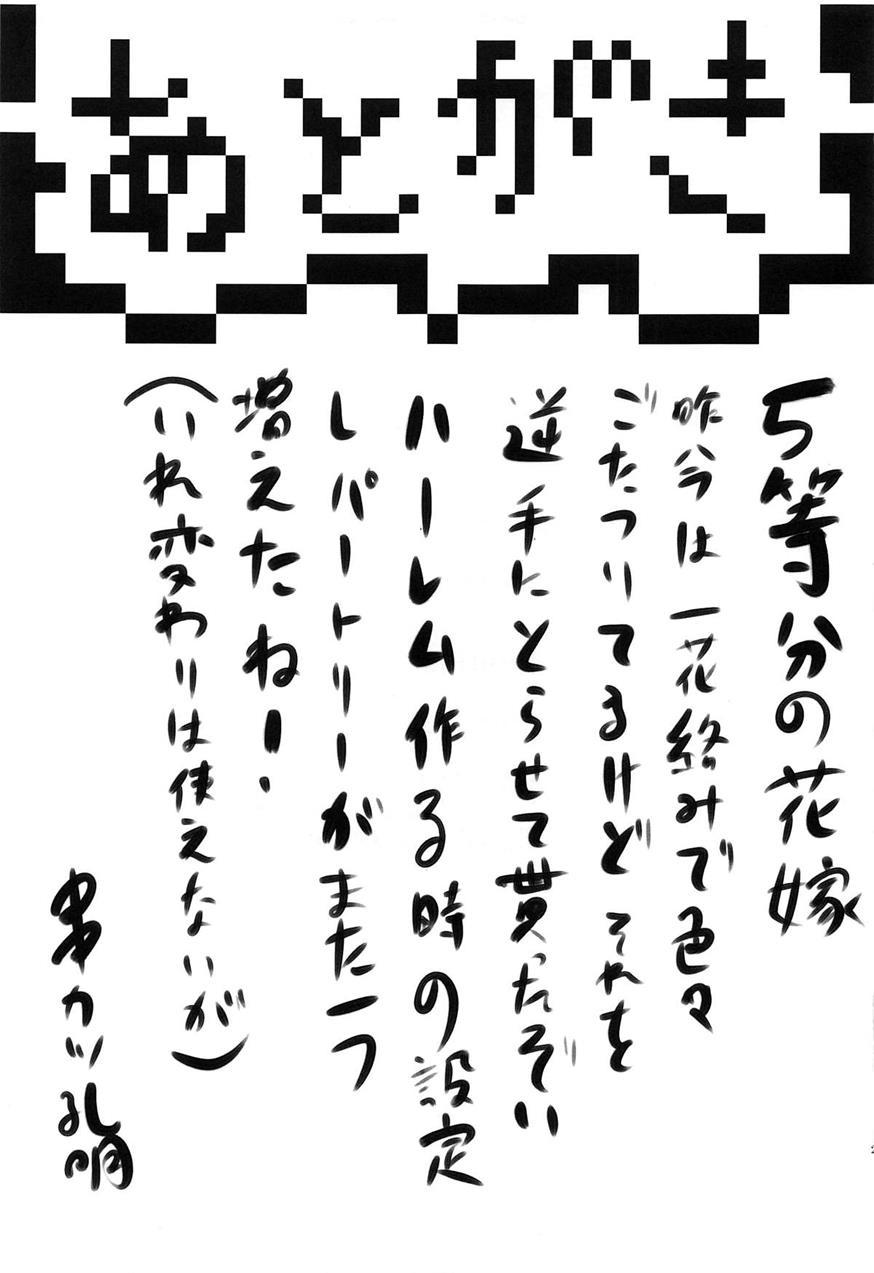 あとがき
5等分の花嫁
昨今は一花絡みで色々
ごたつりてるけどそれを
逆手にとらせて貰ったぞい
ハーレム作る時の設定
レパートリーがまた一つ
増えたね!.
(いれ変わりは使えないが)
串カツ孔明